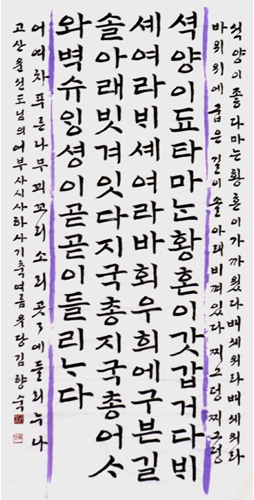 석양이좋다마는황혼이가까웠다배세워라배세워라
바위위에굽은길이솔아래비껴있다찌그덩찌구덩
셕양이됴타마ᄂᆞᆫ황혼이갓갑거다ᄇᆡ
셰여라ᄇᆡ셰여라바회우희에구븐길
솔아래빗겨잇다지국총지국총어ᄉᆞ
와벽슈잉셩이곧곧이들리ᄂᆞ다
어여차푸른나무꾀꼬리소리곳〻에들리누나
고산윤선도님의어부사시사하사기축여름우당김향수